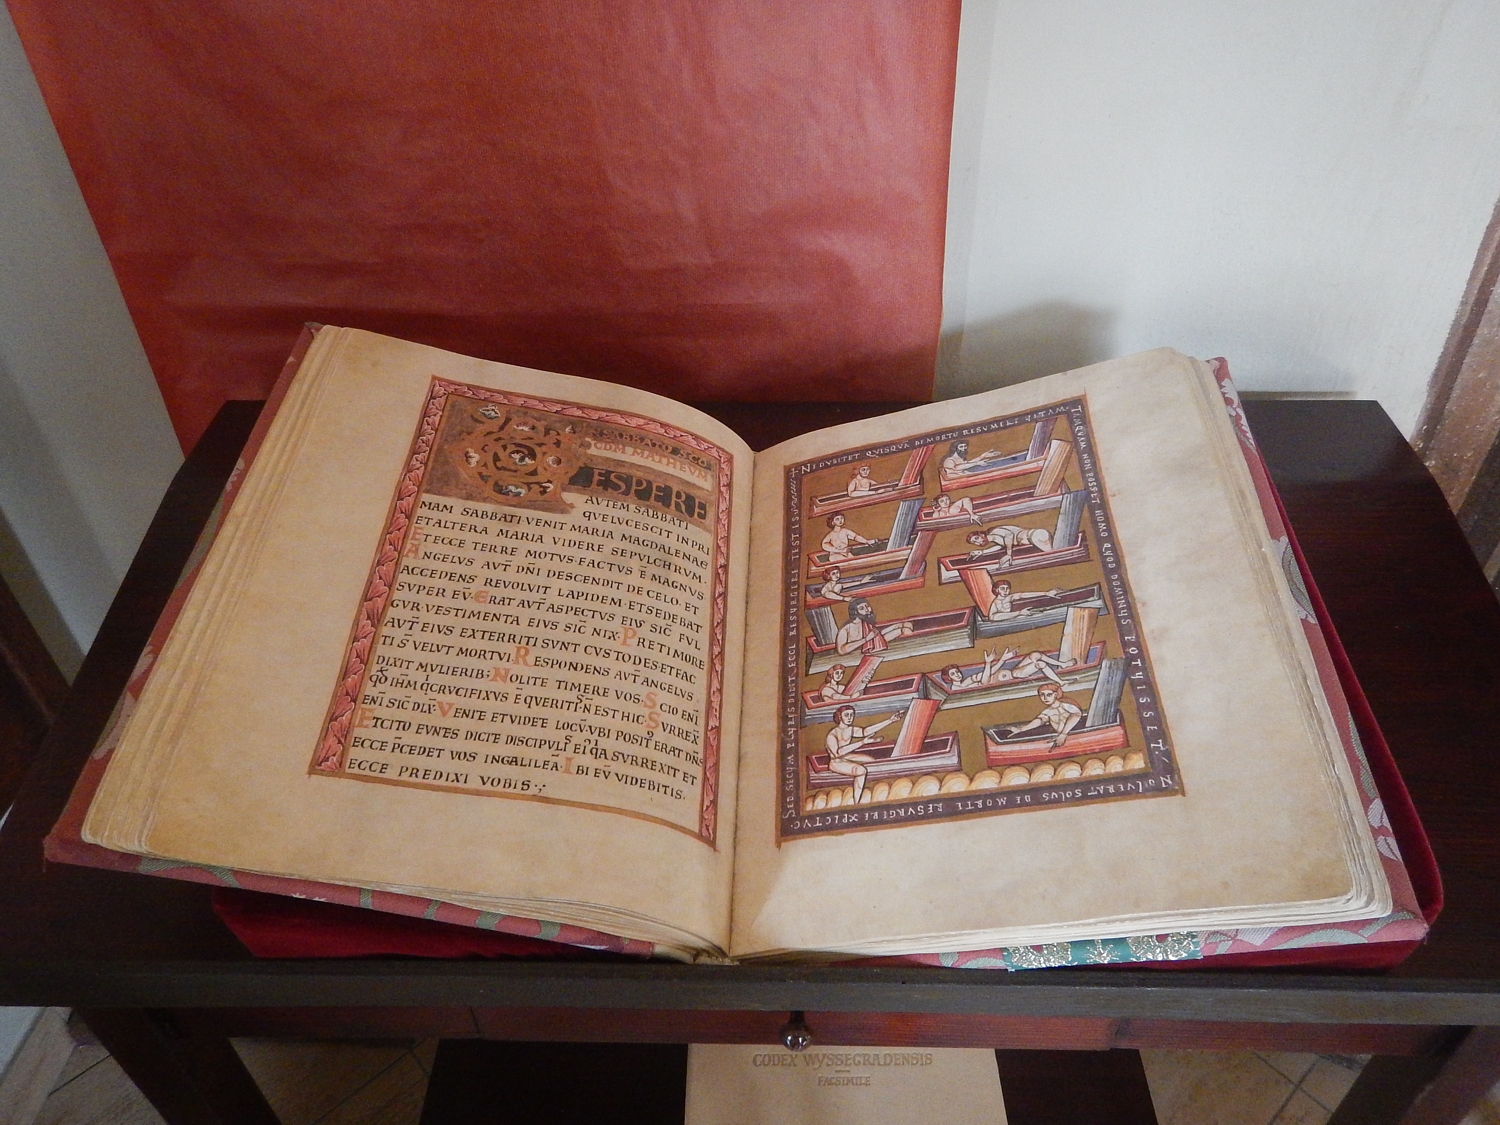 SABBATO SCO
SCDM MATHEVM
ESPERE
AVTEM SABBATI
QVELVCESCIT IN PRI
MAM SABBATI·VENIT MARIA MAGDALENAE
ET ALTERA MARIA VIDERE SEPVLCHRVM·
ET ECCE TERRE MOTVS·FACTVS Ē MAGNVS·
ANGELVS AVT̄ DN̄I DESCENDIT DE CELO·ET
ACCEDENS REVOLVIT LAPIDEM·ET SEDEBAT
SVPER EV̄·ERAT AVT̄ ASPECTVS EIVS SIC̄ FVL
GVR·VESTIMENTA EIVS SIC̄ NIX·PRETIMORE
AVT̄ EIVS EXTERRITI SVNT CVSTODES·ET FAC
TI S̄ VELVT MORTVI·RESPONDENS AVT̄ ANGELVS·
DIXIT MVLIERIB:NOLITE TIMERE VOS·SCIO ENĪ
QD IHM̄ Q CRVCIFIXVS Ē QVERITIS·N̄ EST HIC·SVRREX
ENĪ SIC̄ DIX̄·VENITE ET VIDETE LOCV̄·VBI POSITVS ERAT DN̄S
ET CITO EVNTES DICITE DISCIPVLIS EIVS QA SVRREXIT ET
ECCE P̄CEDET VOS IN GALILEĀ·IBI EV̄ VIDEBITIS·
ECCE PREDIXI VOBIS·;
NE DVBITET QUISQVĀ DE MORTE RESVMERE VITĀ
TAMQVAM NON POSSET HOMO QVOD DOMINVS POTVISSET·
NŌ FVERAT SOLVS DE MORTE RESVRGERE
SED SECVM PLVRES ECCE RESVRGERE TESTES
CODEX WYSSEGRADENSIS
FACSIMILE